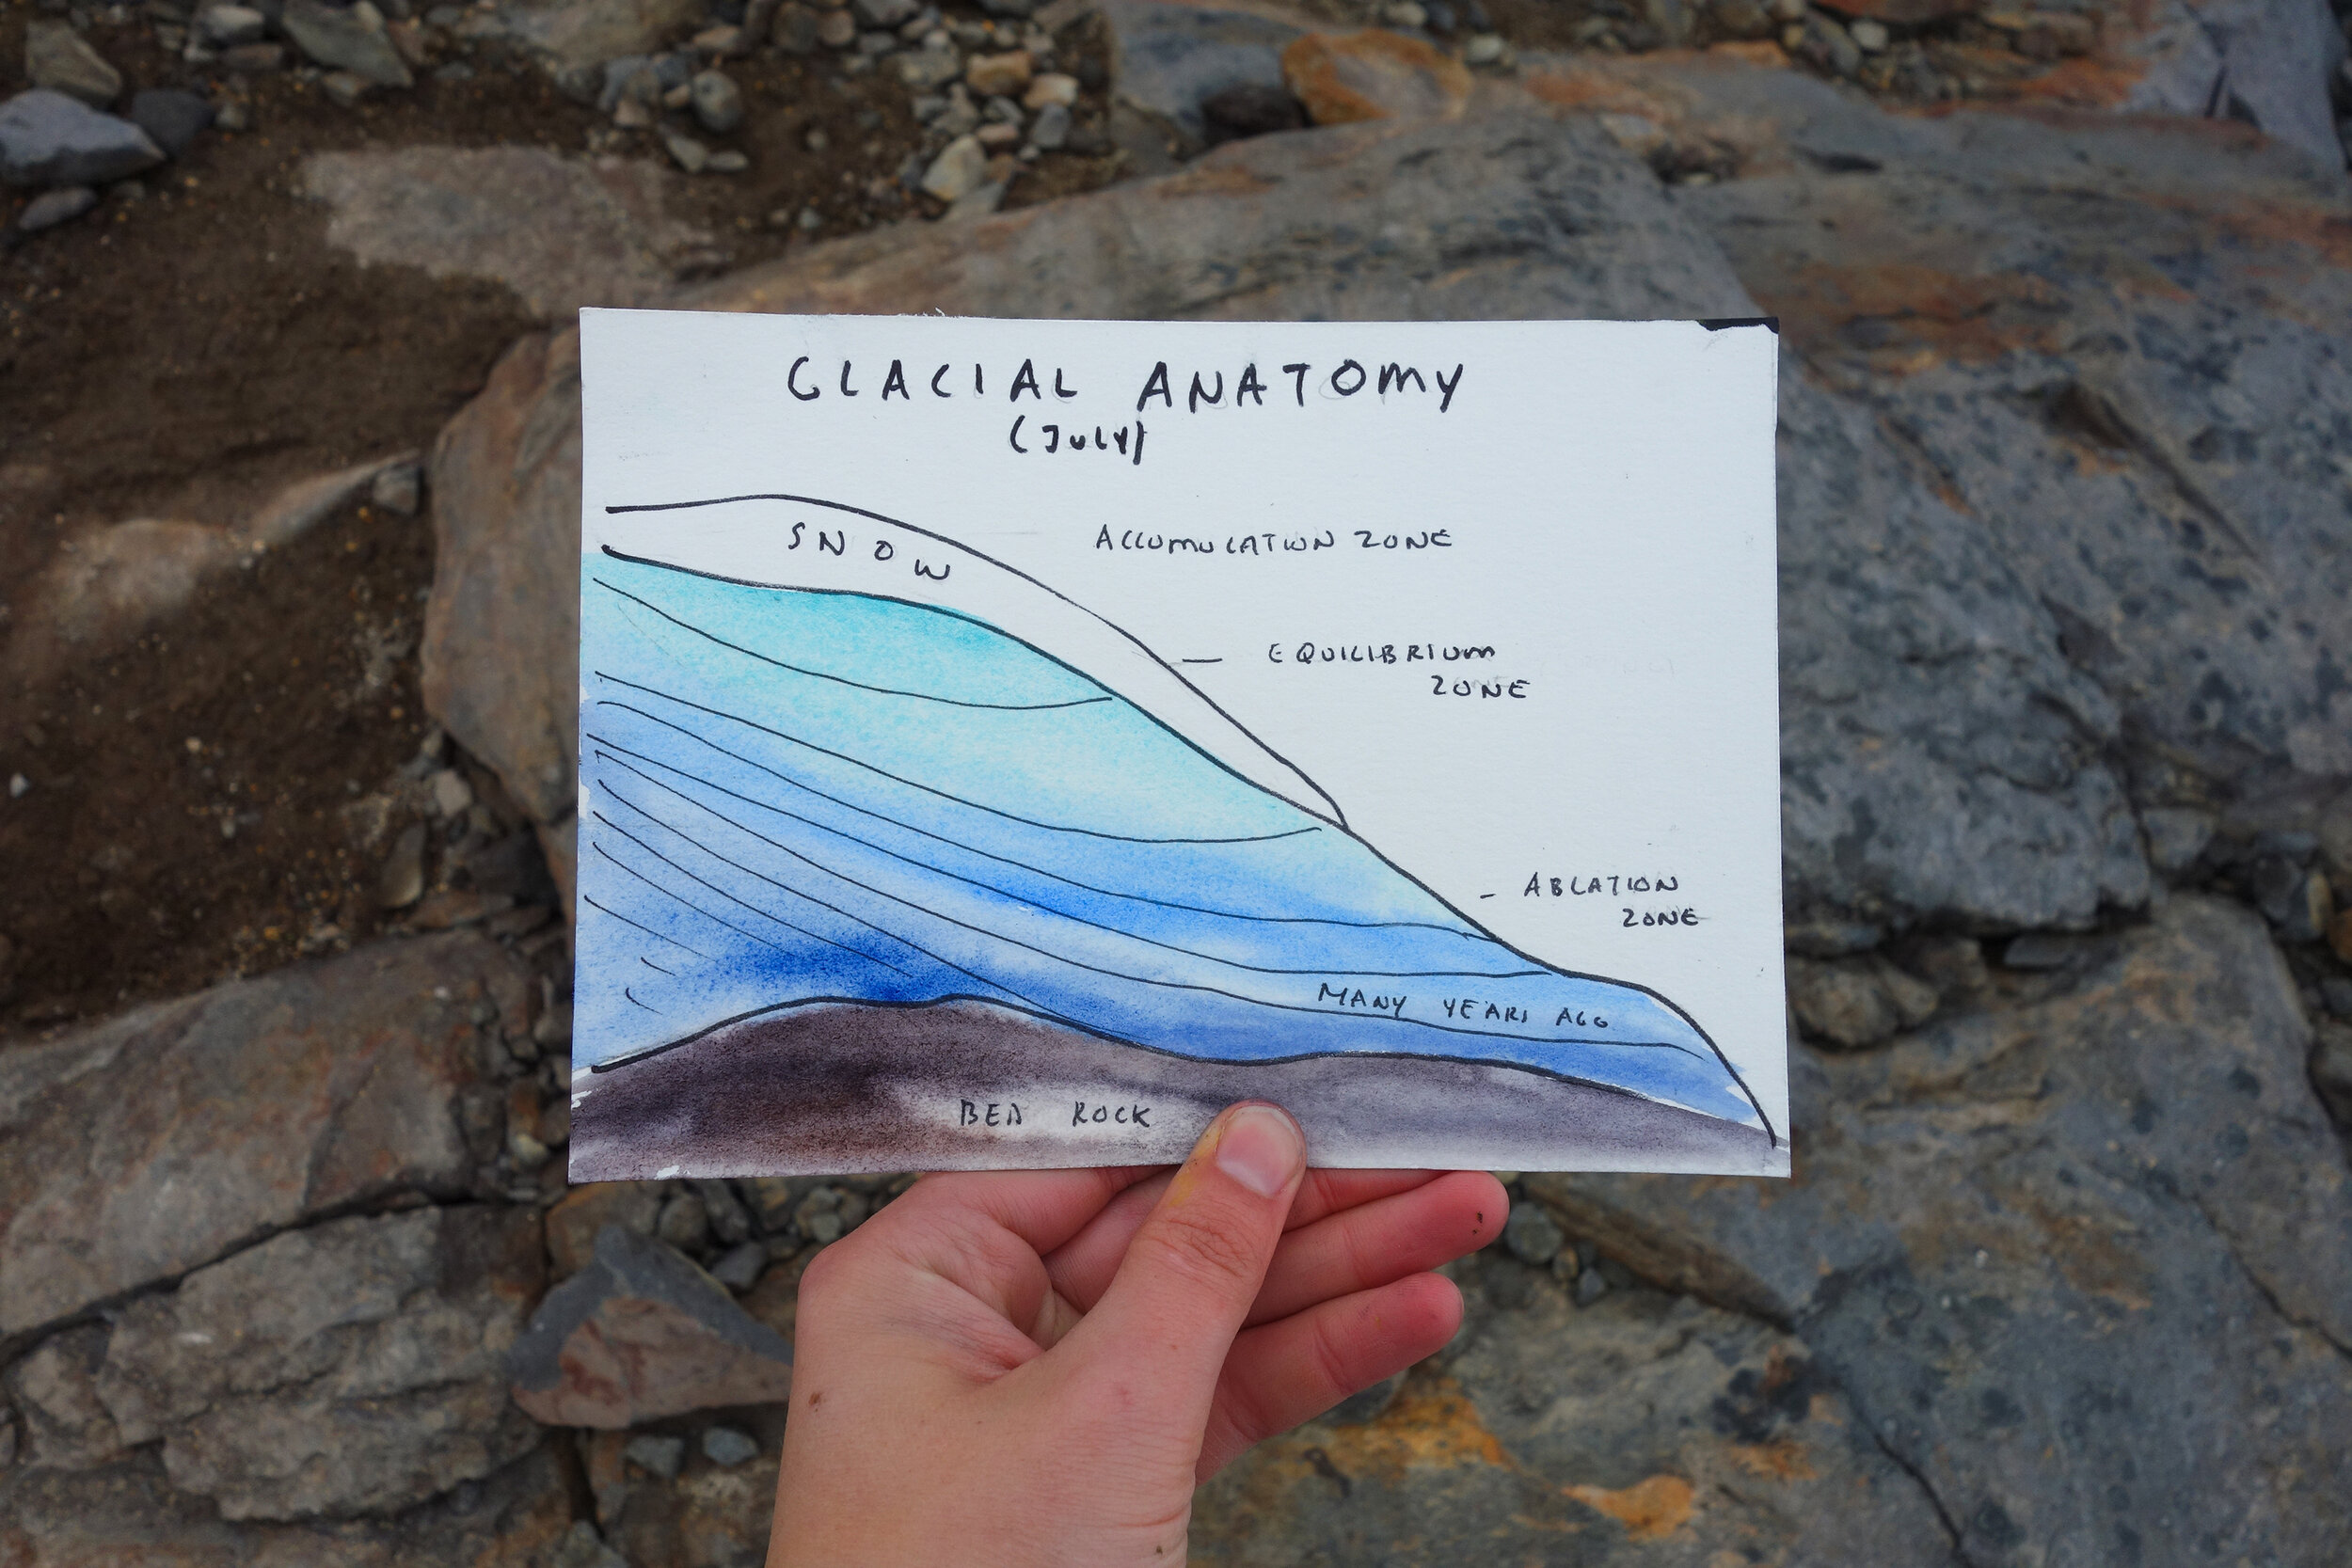 GLACIAL ANATOMY
(JULY)
SNOW
ACCUMULATION ZONE
EQUILIBRIUM
ZONE
ABLATION
ZONE
MANY YEARS AGO
BED ROCK